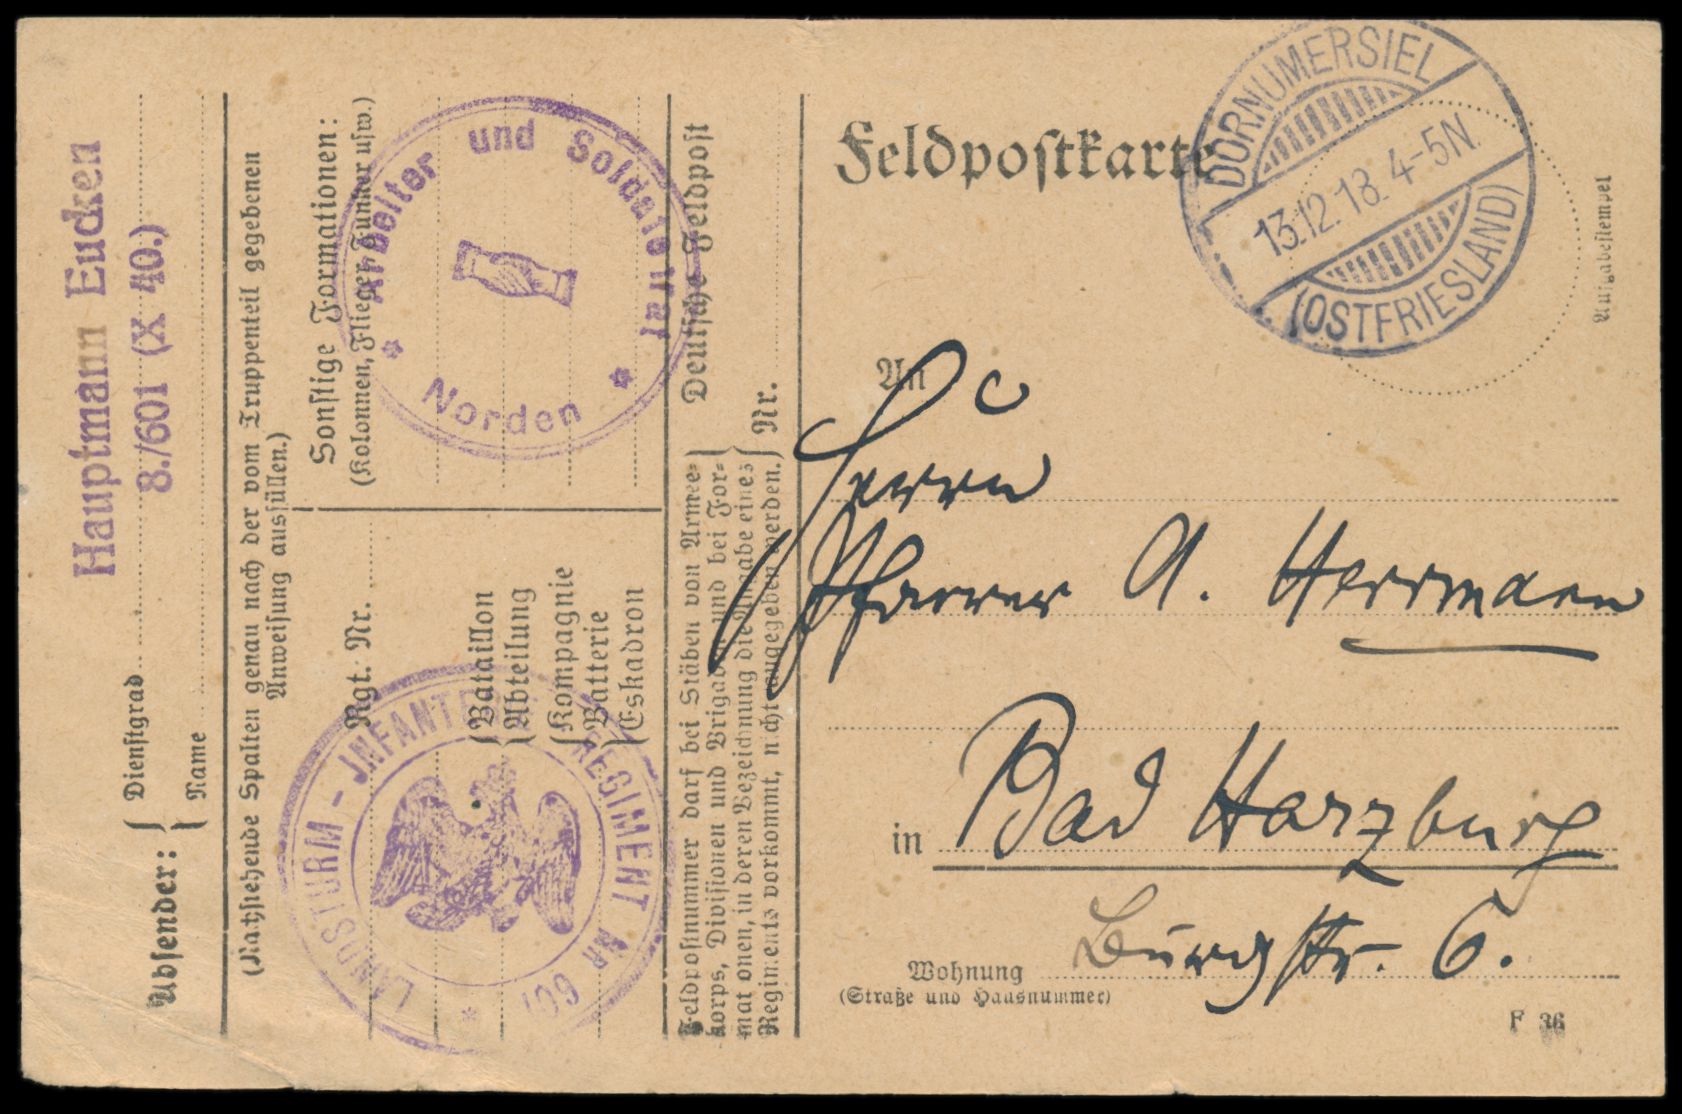 Hauptmann Eucken
8./601 (X 40.)
Absender:
Dienstgrad
Name
(Nachstehende Spalten genau nach der vom Truppenteil gegebenen
Anweisung ausfüllen.)
Sonstige Formationen:
(Kolonnen, Flieger, Funker usw.)
Rgt. Nr.
Bataillon
Abteilung
Kompagnie
Batterie
Eskadron
Arbeiter und Soldatenrat
* Norden *
LANDSTURM - JNFANTERIE REGIMENT NR 601
*
Deutsche Feldpost
Nr.
Feldpostnummer darf bei Stäben von Armee=
korps, Divisionen und Brigaden und bei For=
mationen, in deren Bezeichnung die Angabe eines
Regiments vorkommt, nicht angegeben werden.
Feldpostkarte
DORNUMERSIEL
13.12.18. 4-5N.
(OSTFRIESLAND)
Aufgabestempel
An
Herrn
Pfarrer A. Herrmann
in Bad Harzburg
Wohnung Burgstr. 6.
(Straße und Hausnummer)
F 36